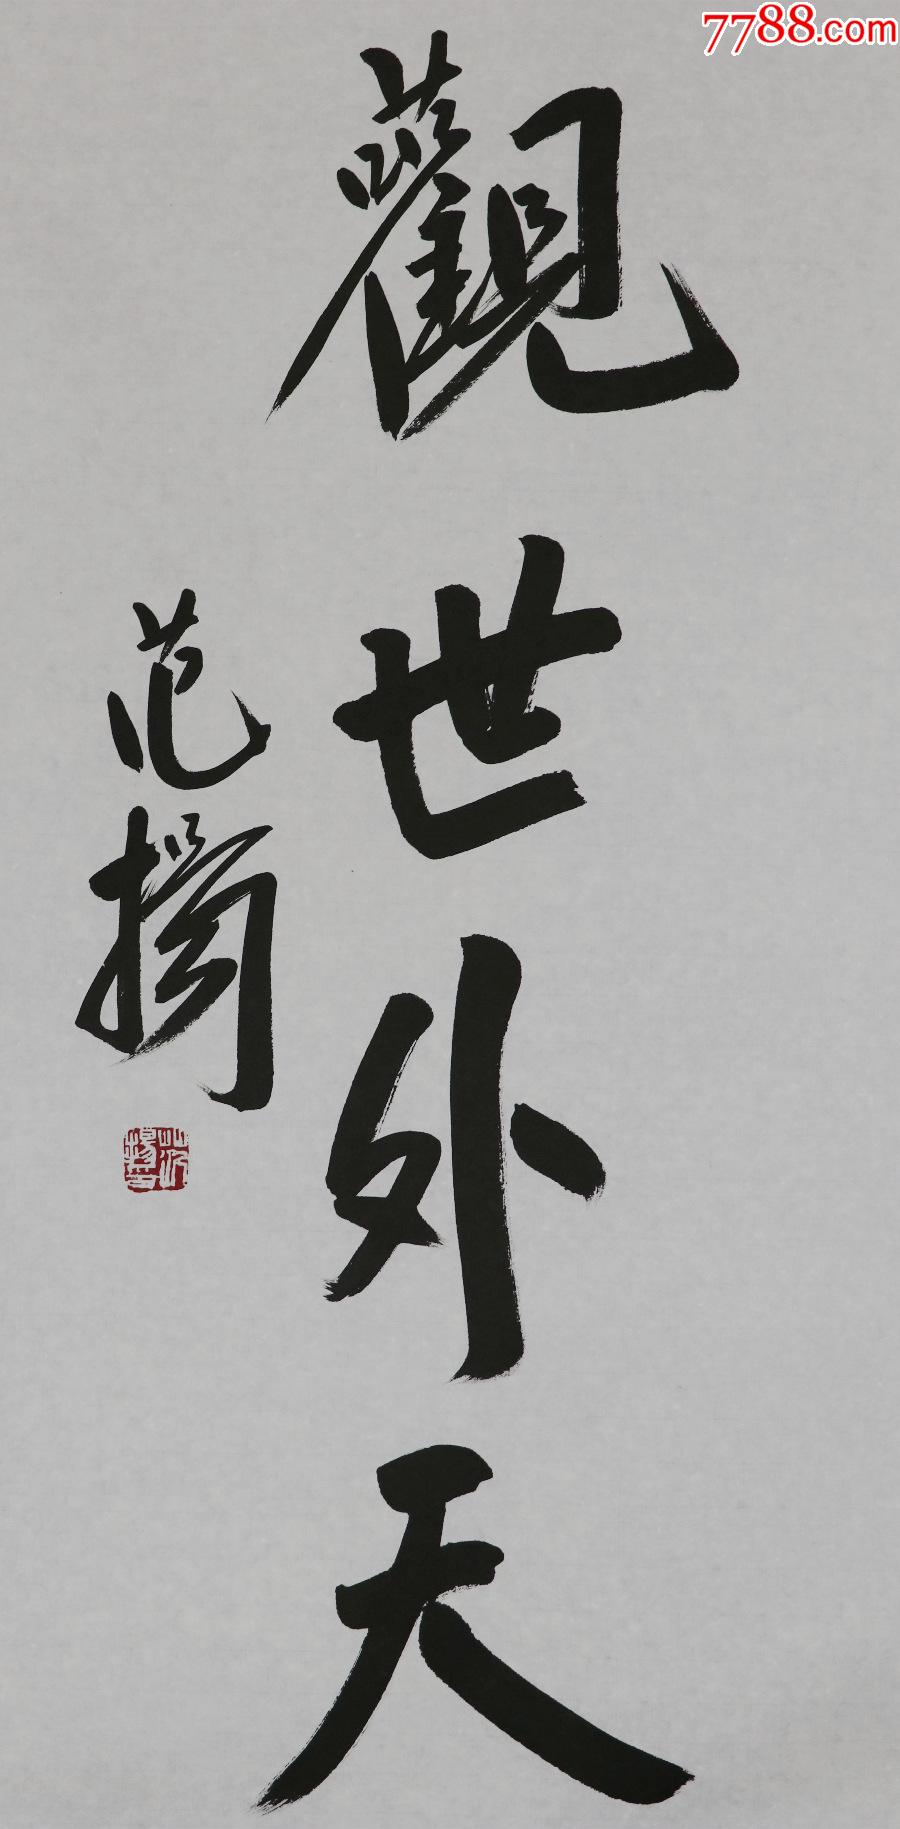 7788.com
觀世外天
范扬